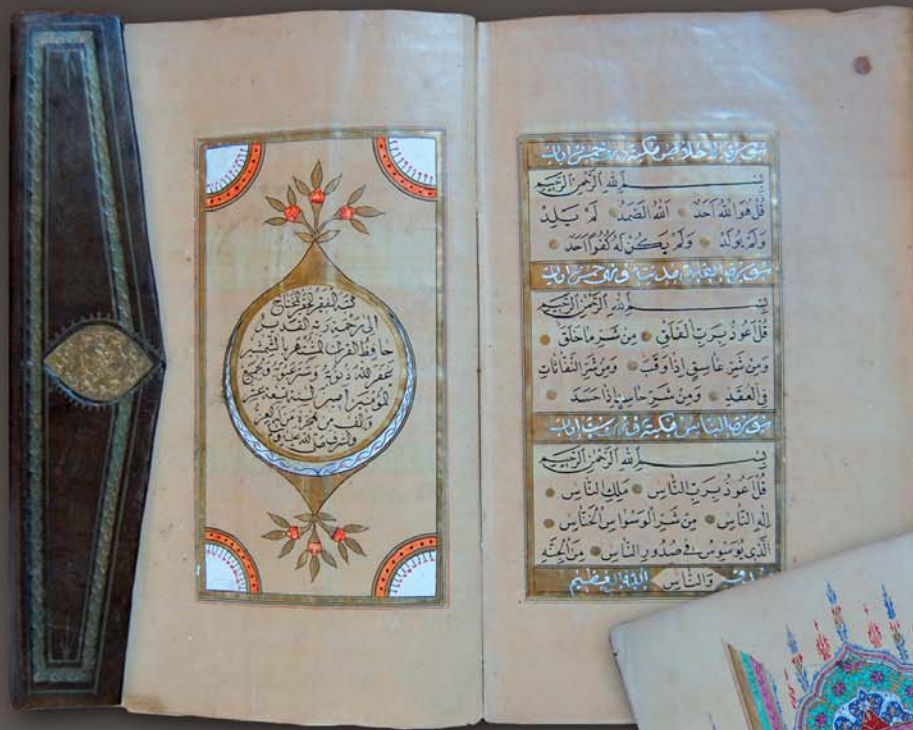 سورة الاخلاص مكية خمس ايات
بسم الله الرحمن الرحيم
قُلْ هُوَ اللهُ اَحَدٌ اَللهُ الصَّمَدُ لَمْ يَلِدْ
وَلَمْ يُولَدْ وَلَمْ يَكُنْ لَهُ كُفُوًا اَحَدٌ
سورة الفلق خمس ايات
بسم الله الرحمن الرحيم
قُلْ اَعُوذُ بِرَبِّ الْفَلَقِ مِنْ شَرِّ مَا خَلَقَ
وَمِنْ شَرِّ غَاسِقٍ اِذَا وَقَبَ وَمِنْ شَرِّ النَّفَّاثَاتِ
فِي الْعُقَدِ وَمِنْ شَرِّ حَاسِدٍ اِذَا حَسَدَ
سورة الناس مكية ايات
بسم الله الرحمن الرحيم
قُلْ اَعُوذُ بِرَبِّ النَّاسِ مَلِكِ النَّاسِ
اِلٰهِ النَّاسِ مِنْ شَرِّ الْوَسْوَاسِ الْخَنَّاسِ
اَلَّذِي يُوَسْوِسُ فِي صُدُورِ النَّاسِ مِنَ الْجِنَّةِ
وَالنَّاسِ الله العظيم
كتبه الفقير الحقير المحتاج
الى رحمة ربه القدير
حافظ القرآن المشتهر
غفر الله ذنوبه وستر عيوبه ولجميع
المؤمنين لسنة تسعة عشر
والف من هجرة من له العز
والشرف صلى الله عليه